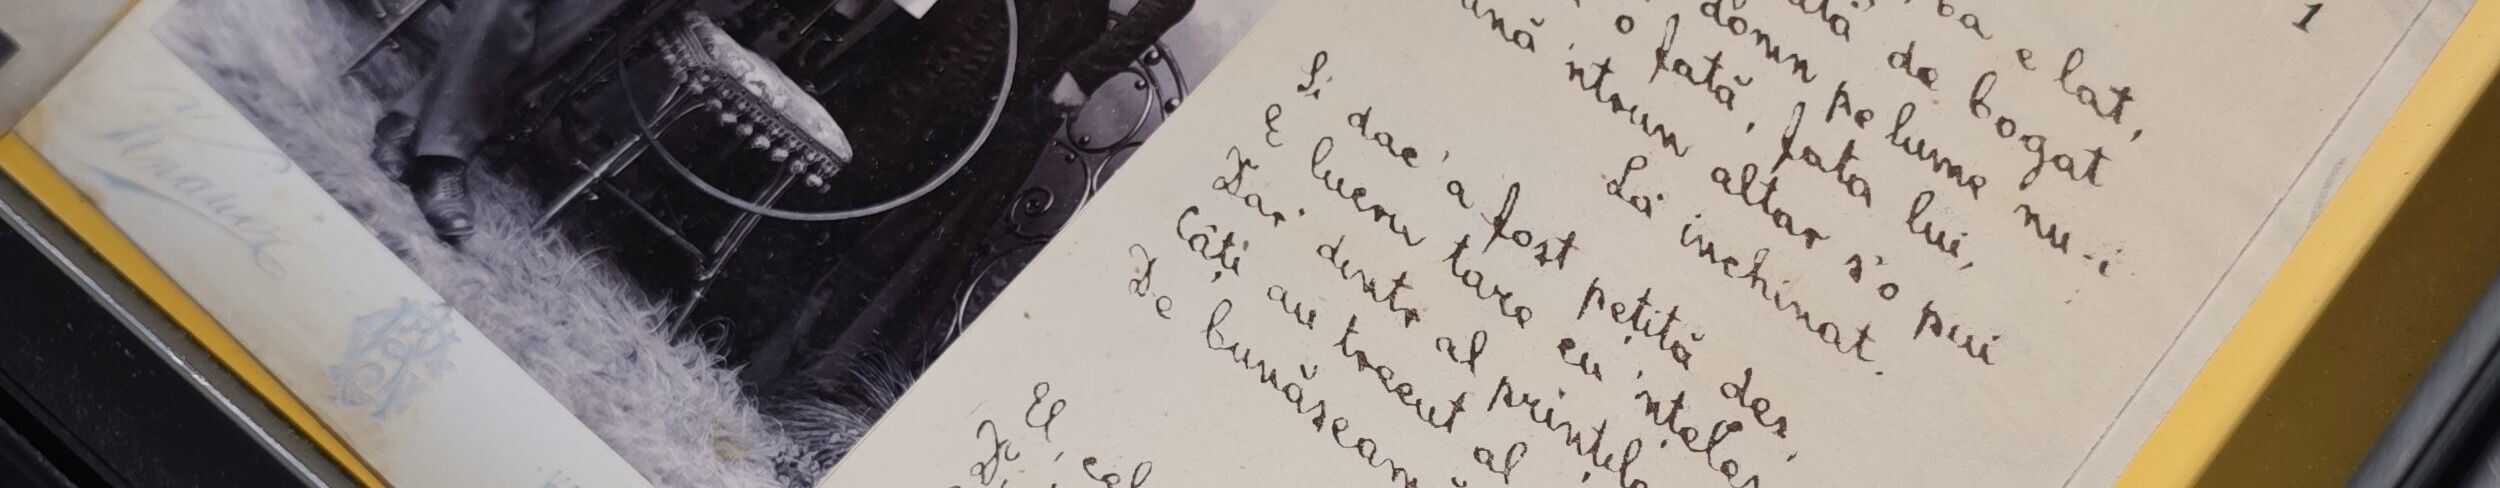 1
ba e lat,
de bogat
domn pe lume nu-i
o fată, fata lui,
'ntrun altar s'o pui
La inchinat.
Si dac'a fost pețită des,
E lucru tare cu 'nțeles
Dar dintr al prințilo
Câți au trecut al
De bunăseam
El, cel